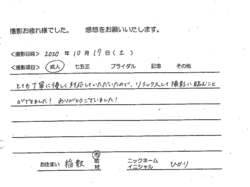 撮影お疲れ様でした。 感想をお願いいたします。
<撮影日時> 2020 年 10 月 17 日 (土)
<撮影項目> 成人 七五三 ブライダル 記念 その他
とても丁寧に優しく対応していただいたので、リラックスして撮影に臨むこと
ができました! ありがとうございました!
お住まい 稲敷 市 町 村 ニックネーム イニシャル ひかり